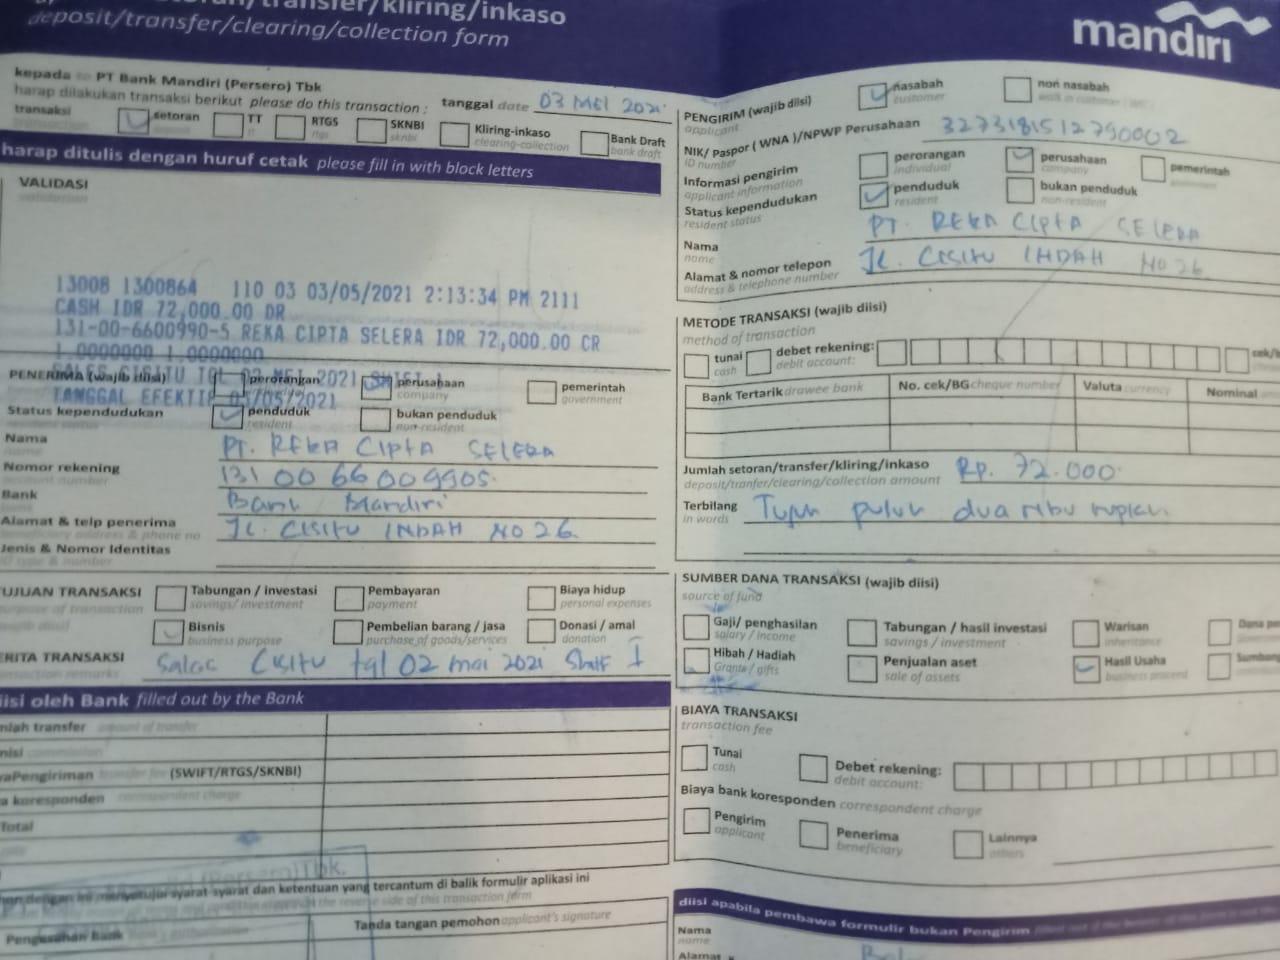 /transfer/kliring/inkaso
deposit/transfer/clearing/collection form
mandiri
kepada to PT Bank Mandiri (Persero) Tbk
harap dilakukan transaksi berikut please do this transaction :
tanggal date 03 MEI 2021
transaksi
setoran
TT
RTGS
rtgs
SKNBI
sknbi
Kliring-inkaso
clearing-collection
Bank Draft
bank draft
harap ditulis dengan huruf cetak please fill in with block letters
VALIDASI
13008 1300864 110 03 03/05/2021 2:13:34 PM 2111
CASH IDR 72,000.00 DR
131-00-6600990-5 REKA CIPTA SELERA IDR 72,000.00 CR
1.0000000 1.0000000
SALES CISITU TGL 02 MEI 2021 SHIFT
TANGGAL EFEKTIF 03/05/2021
PENERIMA (wajib diisi)
perorangan
perusahaan
company
pemerintah
government
Status kependudukan
penduduk
resident
bukan penduduk
non-resident
Nama PT. REKA CIPTA SELERA
name
Nomor rekening 1310066009905
account number
Bank Bank Mandiri
Alamat & telp penerima Jl. CISITU INDAH NO 26
Jenis & Nomor Identitas
UJUAN TRANSAKSI
purpose of transaction
Tabungan / investasi
savings/ investment
Pembayaran
payment
Biaya hidup
personal expenses
Bisnis
business purpose
Pembelian barang / jasa
purchase of goods/services
Donasi / amal
donation
ERITA TRANSAKSI Sales Cisitu tgl 02 mei 2021 Shift I
iisi oleh Bank filled out by the Bank
mlah transfer amount of transfer
nisi commission
yaPengiriman transfer fee (SWIFT/RTGS/SKNBI)
a koresponden correspondent charge
Total
(Persero) Tbk.
hon dengan ini menyetujui syarat-syarat dan ketentuan yang tercantum di balik formulir aplikasi ini
Pengesahan bank
Tanda tangan pemohon applicant's signature
PENGIRIM (wajib diisi)
applicant
nasabah
customer
non nasabah
NIK/ Paspor ( WNA )/NPWP Perusahaan 3273181512790002
ID number
Informasi pengirim
applicant information
perorangan
individual
perusahaan
company
pemerintah
Status kependudukan
resident status
penduduk
resident
bukan penduduk
non-resident
Nama PT. REKA CIPTA SELERA
name
Alamat & nomor telepon Jl. CISITU INDAH NO 26
address & telephone number
METODE TRANSAKSI (wajib diisi)
method of transaction
tunai
cash
debet rekening:
debit account:
Bank Tertarik drawee bank
No. cek/BG cheque number
Valuta currency
Nominal
Jumlah setoran/transfer/kliring/inkaso Rp. 72.000
deposit/tranfer/clearing/collection amount
Terbilang Tujuh puluh dua ribu rupiah
in words
SUMBER DANA TRANSAKSI (wajib diisi)
source of fund
Gaji/ penghasilan
salary / income
Tabungan / hasil investasi
savings / investment
Warisan
inheritance
Dana pe
Hibah / Hadiah
Grants / gifts
Penjualan aset
sale of assets
Hasil Usaha
business proceed
Sumbang
BIAYA TRANSAKSI
transaction fee
Tunai
cash
Debet rekening:
debit account:
Biaya bank koresponden correspondent charge
Pengirim
applicant
Penerima
beneficiary
Lainnya
others
diisi apabila pembawa formulir bukan Pengirim
Nama
name
Alamat